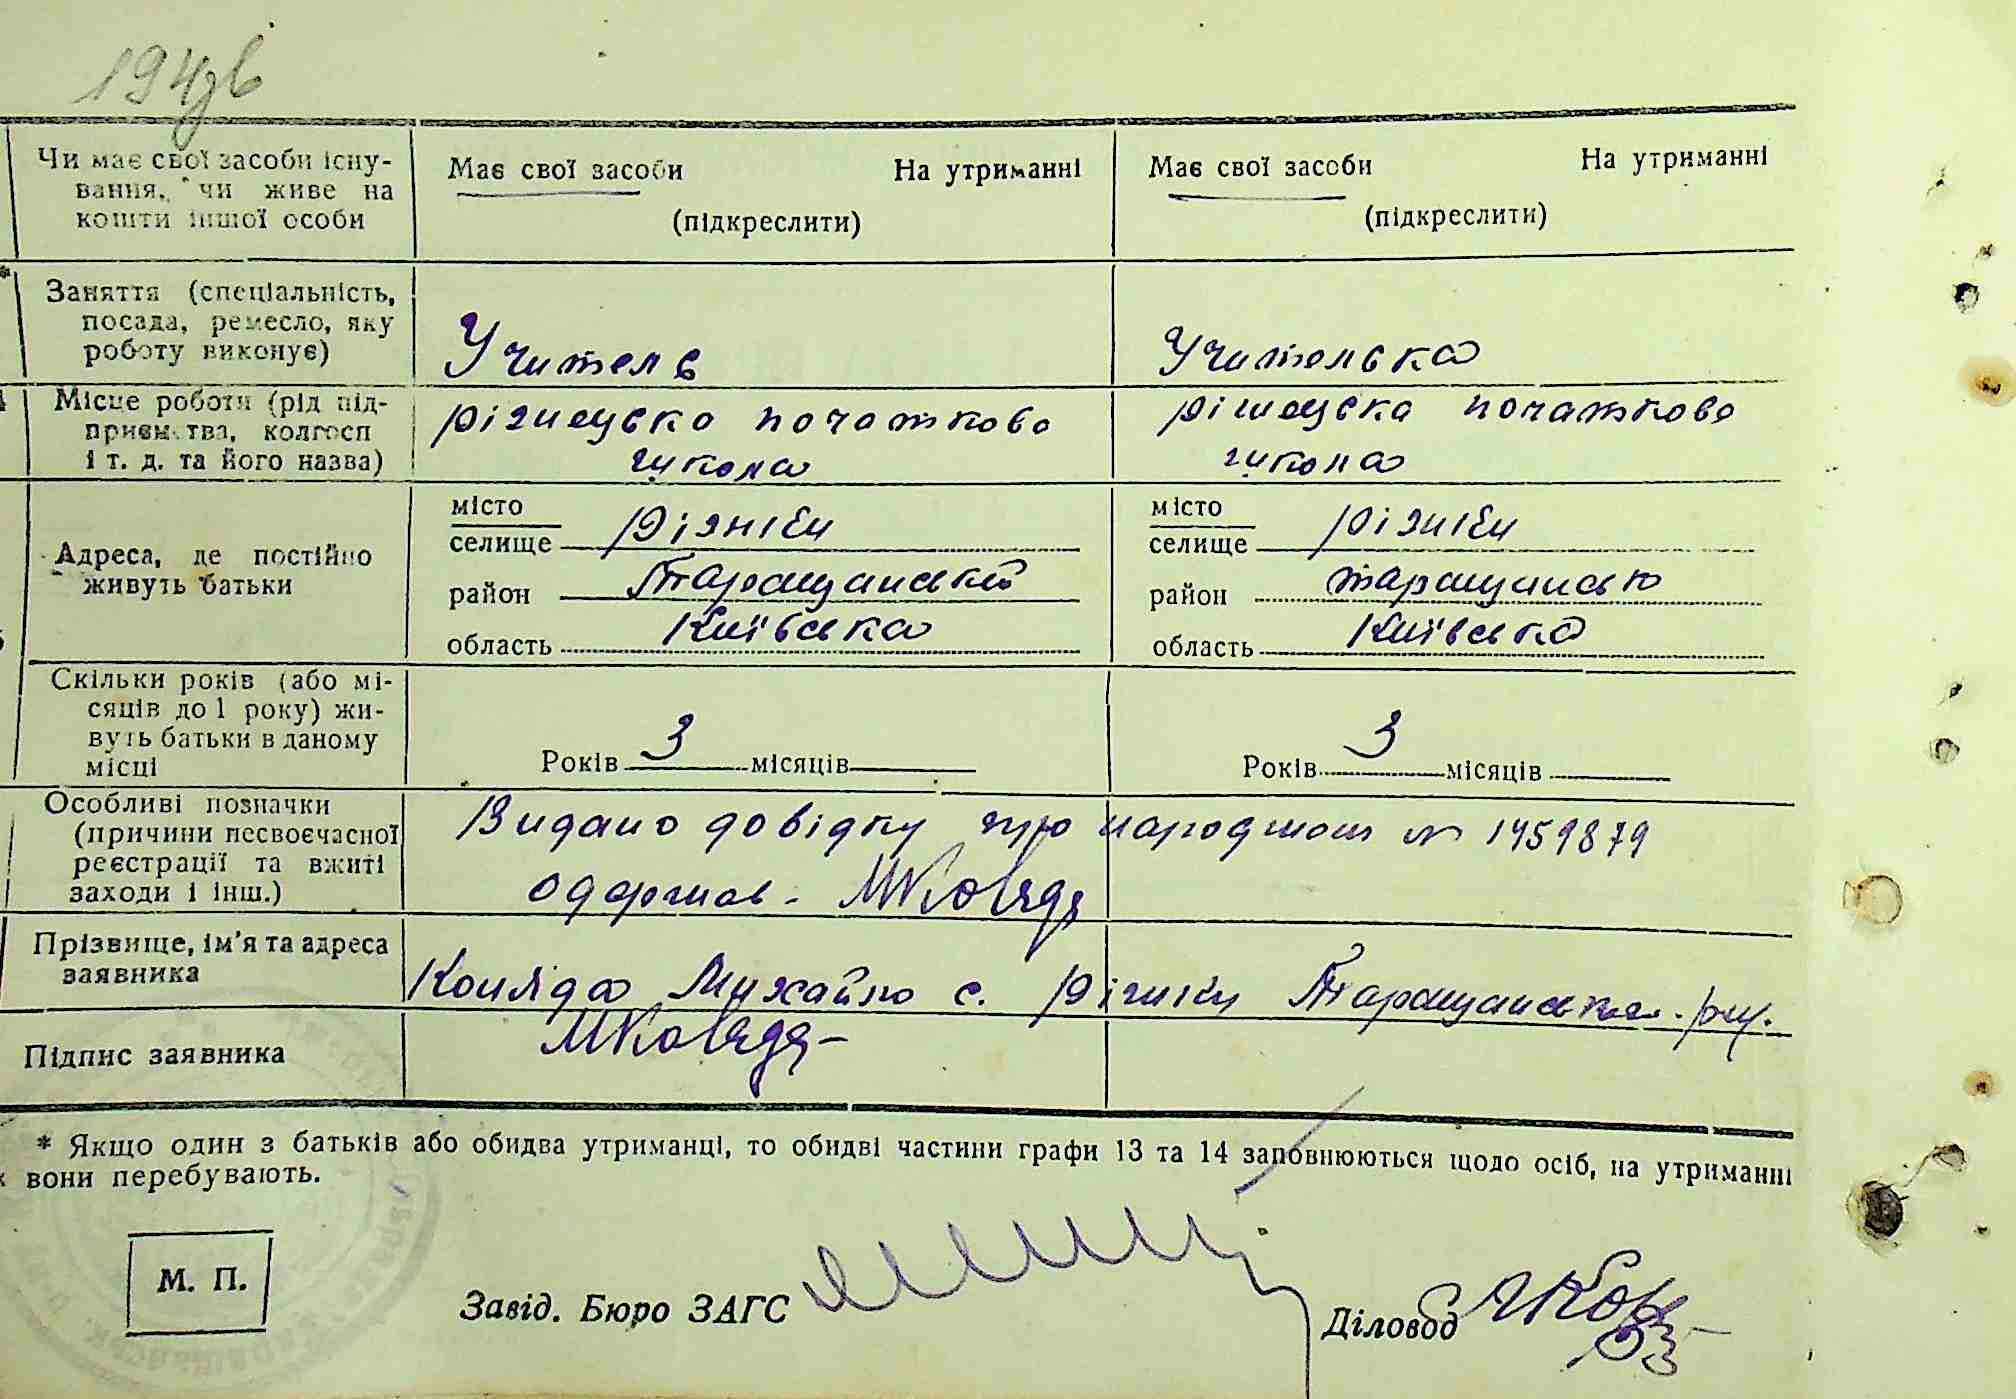 Чи має свої засоби існу-
вання, чи живе на
кошти іншої особи
Має свої засоби На утриманні
(підкреслити)
Має свої засоби На утриманні
(підкреслити)
Заняття (спеціальність,
посада, ремесло, яку
роботу виконує)
Учитель
Учителька
Місце роботи (рід під-
приємства, колгосп
і т. д. та його назва)
початкова
школа
початкова
школа
Адреса, де постійно
живуть батьки
місто
селище Різники
район Таращанський
область Київська
місто
селище Різники
район Таращанський
область Київська
Скільки років (або мі-
сяців до 1 року) жи-
вуть батьки в даному
місці
Років 3 місяців
Років 3 місяців
Особливі позначки
(причини несвоєчасної
реєстрації та вжиті
заходи і інш.)
Видано довідку про народження № 1459879
одержав. МКоляда
Прізвище, ім'я та адреса
заявника
Коляда Михайло с. Різники
Підпис заявника
МКоляда
* Якщо один з батьків або обидва утриманці, то обидві частини графи 13 та 14 заповнюються щодо осіб, на утриманні
вони перебувають.
М. П.
Завід. Бюро ЗАГС
Діловод